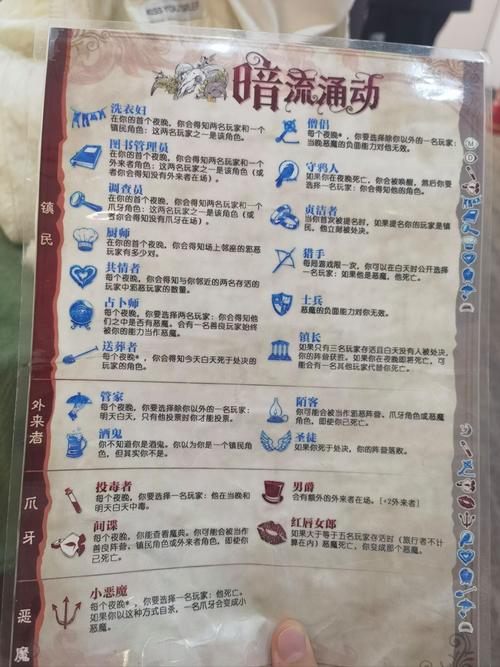 暗流涌动
镇民
洗衣妇
在你的首个夜晚，你会得知两名玩家和一个
镇民角色：这两名玩家之一是该角色。
图书管理员
在你的首个夜晚，你会得知两名玩家和一个
外来者角色：这两名玩家之一是该角色（或
者你会得知没有外来者在场）。
调查员
在你的首个夜晚，你会得知两名玩家和一个
爪牙角色：这两名玩家之一是该角色（或
者你会得知没有爪牙在场）。
厨师
在你的首个夜晚，你会得知场上邻座的邪恶
玩家有多少对。
共情者
每个夜晚，你会得知与你邻近的两名存活的
玩家中邪恶玩家的数量。
占卜师
每个夜晚，你要选择两名玩家：你会得知他
们之中是否有恶魔。会有一名善良玩家始终
被你的能力当作恶魔。
送葬者
每个夜晚*，你会得知今天白天死于处决的
玩家的角色。
僧侣
每个夜晚*，你要选择除你以外的一名玩家：
当晚恶魔的负面能力对他无效。
守鸦人
如果你在夜晚死亡，你会被唤醒，然后你要
选择一名玩家：你会得知他的角色。
贞洁者
当你首次被提名时，如果提名你的玩家是镇
民，他立刻被处决。
猎手
每局游戏限一次，你可以在白天时公开选择
一名玩家：如果他是恶魔，他死亡。
士兵
恶魔的负面能力对你无效。
镇长
如果只有三名玩家存活且白天没有人被处决，
你的阵营获胜。如果你在夜晚即将死亡，可
能会有一名其他玩家代替你死亡。
外来者
管家
每个夜晚，你要选择除你以外的一名玩家：
明天白天，只有他投票时你才能投票。
酒鬼
你不知道你是酒鬼。你以为你是一个镇民角
色，但其实你不是。
陌客
你可能会被当作邪恶阵营、爪牙角色或恶魔
角色，即使你已死亡。
圣徒
如果你死于处决，你的阵营落败。
爪牙
投毒者
每个夜晚，你要选择一名玩家：他在当晚和
明天白天中毒。
间谍
每个夜晚，你能查看魔典。你可能会被当作
善良阵营、镇民角色或外来者角色，即使你
已死亡。
男爵
会有额外的外来者在场。[+2外来者]
红唇女郎
如果大于等于五名玩家存活时（旅行者不计
算在内）恶魔死亡，你变成那个恶魔。
恶魔
小恶魔
每个夜晚*，你要选择一名玩家：他死亡。
如果你以这种方式自杀，一名爪牙会变成小
恶魔。